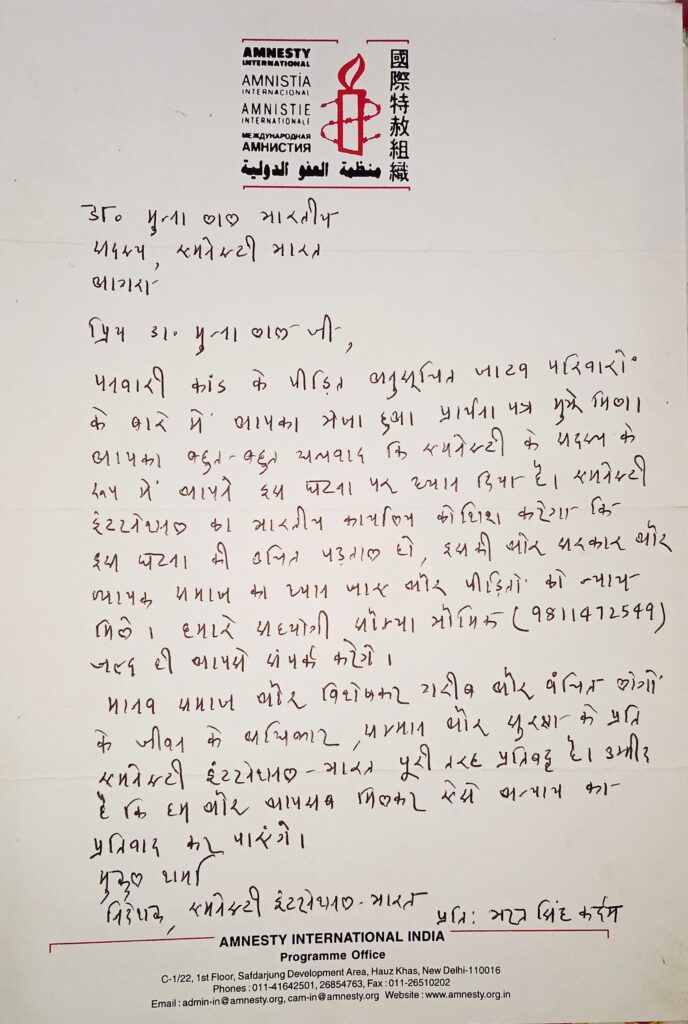 AMNESTY
INTERNATIONAL
AMNISTÍA
INTERNACIONAL
AMNISTIE
INTERNATIONALE
МЕЖДУНАРОДНАЯ
АМНИСТИЯ
منظمة العفو الدولية
國際特赦組織
डा॰ मुन्ना लाल भारतीय
सदस्य, एमनेस्टी भारत
आगरा
प्रिय डा॰ मुन्ना लाल जी,
पनवारी कांड के पीड़ित अनुसूचित जाटव परिवारों
के बारे में आपका भेजा हुआ प्रार्थना पत्र मुझे मिला।
आपका बहुत-बहुत धन्यवाद कि एमनेस्टी के सदस्य के
रूप में आपने इस घटना पर ध्यान दिया है। एमनेस्टी
इंटरनेशनल का भारतीय कार्यालय कोशिश करेगा कि
इस घटना की उचित पड़ताल हो, इसकी ओर सरकार और
व्यापक समाज का ध्यान जाए और पीड़ितों को न्याय
मिले। हमारे सहयोगी सौम्या भौमिक (9811472549)
जल्द ही आपसे संपर्क करेंगे।
मानव समाज और विशेषकर गरीब और वंचित लोगों
के जीवन के अधिकार, सम्मान और सुरक्षा के प्रति
एमनेस्टी इंटरनेशनल-भारत पूरी तरह प्रतिबद्ध है। उम्मीद
है कि हम और आपसब मिलकर ऐसे अन्याय का
प्रतिवाद कर पाएंगे।
मुकुल शर्मा
निदेशक, एमनेस्टी इंटरनेशनल-भारत
प्रति: भरत सिंह कर्दम
AMNESTY INTERNATIONAL INDIA
Programme Office
C-1/22, 1st Floor, Safdarjung Development Area, Hauz Khas, New Delhi-110016
Phones : 011-41642501, 26854763, Fax : 011-26510202
Email : admin-in@amnesty.org, cam-in@amnesty.org Website : www.amnesty.org.in